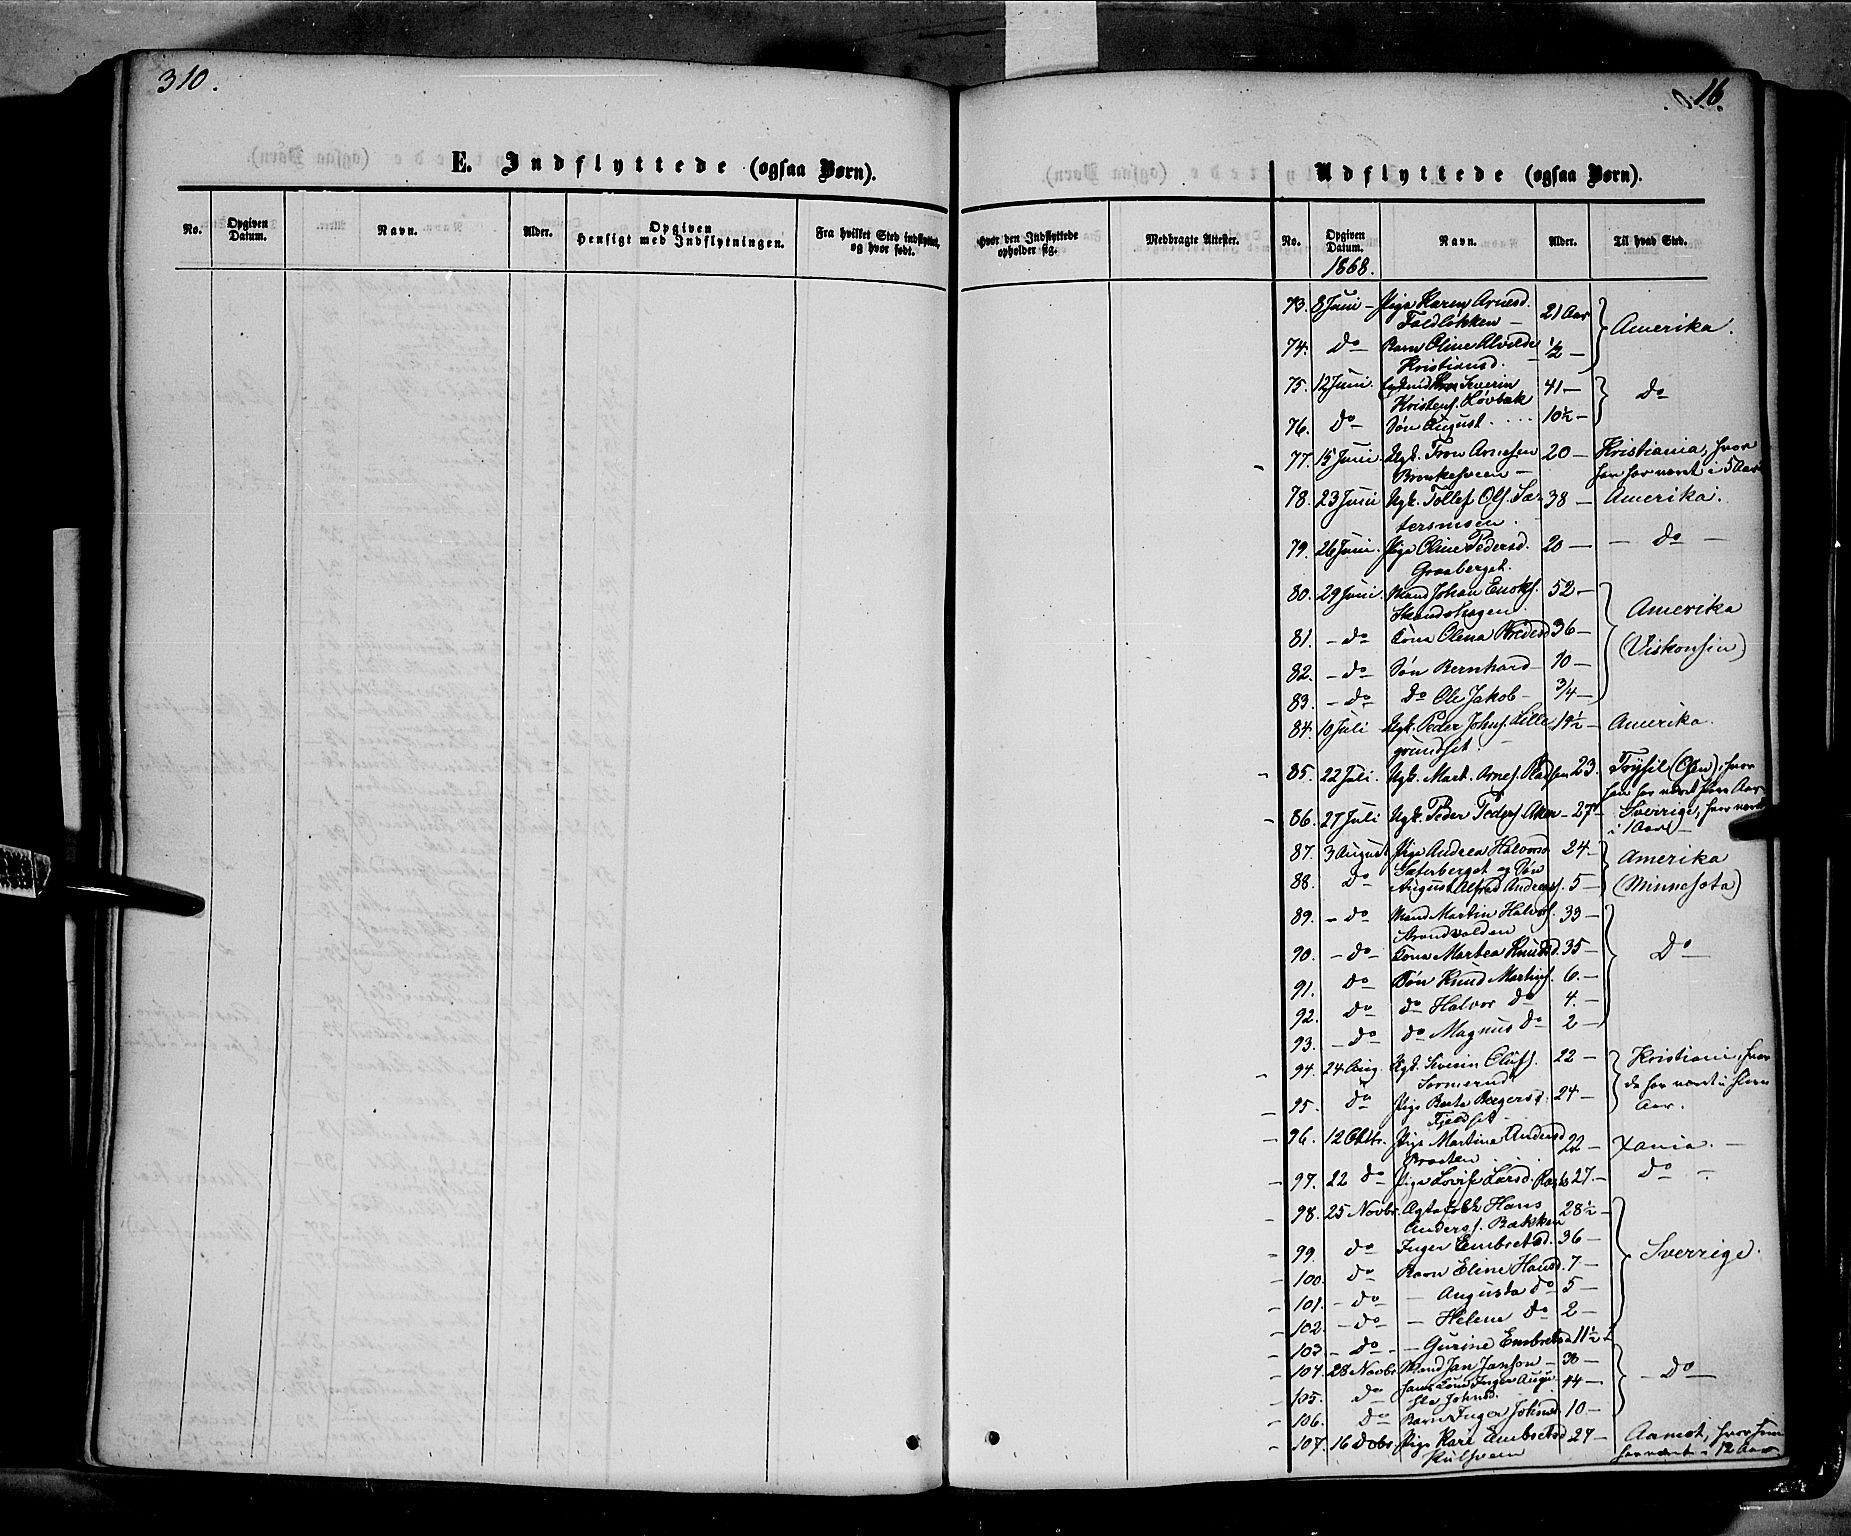 310.
E. Indflyttede (ogsaa Børn).
No.
Opgiven Datum.
Navn.
Alder.
Opgiven Hensigt med Indflytningen.
Fra hvilket Sted indflyttet, og hvor født.
16.
Udflyttede (ogsaa Børn).
Hvor den Indflyttede opholder sig.
Medbragte Attester.
No.
Opgiven Datum.
Navn.
Alder.
Til hvad Sted.
1868.
73. 8 Juni – Pige Karen Arnesd. 21 Aar Amerika.
74. Do Barn Oline Alvilde ½ –
Kristiansd.
75. 12 Juni. Severin 41 – Do
Kristens. Løvbak
76. Do Søn August 10½ –
77. 15 Juni. Ugk. Tron Arnesen 20 – Kristiania, hvor
han har været i 5 Aar
78. 23 Juni Ugk. Tollef Ols. Sæ- 38 – Amerika.
tersmoen.
79. 26 Juni. Pige Oline Pedersd. 20 – – Do –
Graaberget.
80. 29 Juni. Mand Johan Enoks. 52 – Amerika
(Viskonsin)
81. – Do Kona Olena 36 –
82. – Do Søn Bernhard – 10 –
83. – Do Do Ole Jakob – 3/4 –
84. 10 Juli Ugk. Peder Johns. Lille 19½ – Amerika.
grundset –
85. 22 Juli. Ugk. Mart. Arnes. 23. Trysil (Osen), hvor
han har været flere Aar
86. 27 Juli Ugk. Peder Peders. – 27 – Sverrige, hvor været
i 1 Aar –
87. 3 August Pige Andrea Halvorsd 24 – Amerika
Sæterberget og Søn
88. Do August Alfred Andreass. 5 – (Minnesota)
89. – Do Mand Martin Halvors. 33 –
Strandvolden
90. – Do – Kona Martea Knudsd. 35 – Do –
91. Do Søn Knud Martins. 6. –
92. Do Do Halvor Do 4. –
93. – Do Do Magnus Do 2 –
94. 24 Aug. Ugk. Severin Olufs. 22 – Kristiania, hvor
de har været i flere
Aar.
95. Do Pige Berte Børgersd. 24 –
Fjeldset
96. 12 Oktbr. Pige Martina Andersd 22 – Xania. –
Braaten
97. 22 Do Pige Lovise Larsd. 27. – Do –
98. 25 Novbr. Ægtefolk Hans 28½ –
Anderss. Bakken
99. Do Inger Embretsd. 36 – Sverrige.
100. Do Barn Eline Hansd. 7 –
101. – Do – Augusta Do 5 –
102. – Do – Helene Do 2 –
103 – Do – – Gurine Embretsd 11½
104. 28 Novbr. Mand Jan Jansson – 38 – – Do –
105. Do Inger Augu- 44 –
sta Johnsd.
106. Do Barn Inger Johnsd. 10 –
107. 16 Debr. Pige Kari Embretsd 27 – Aamot, hvor hun
har været i 12 Aar.